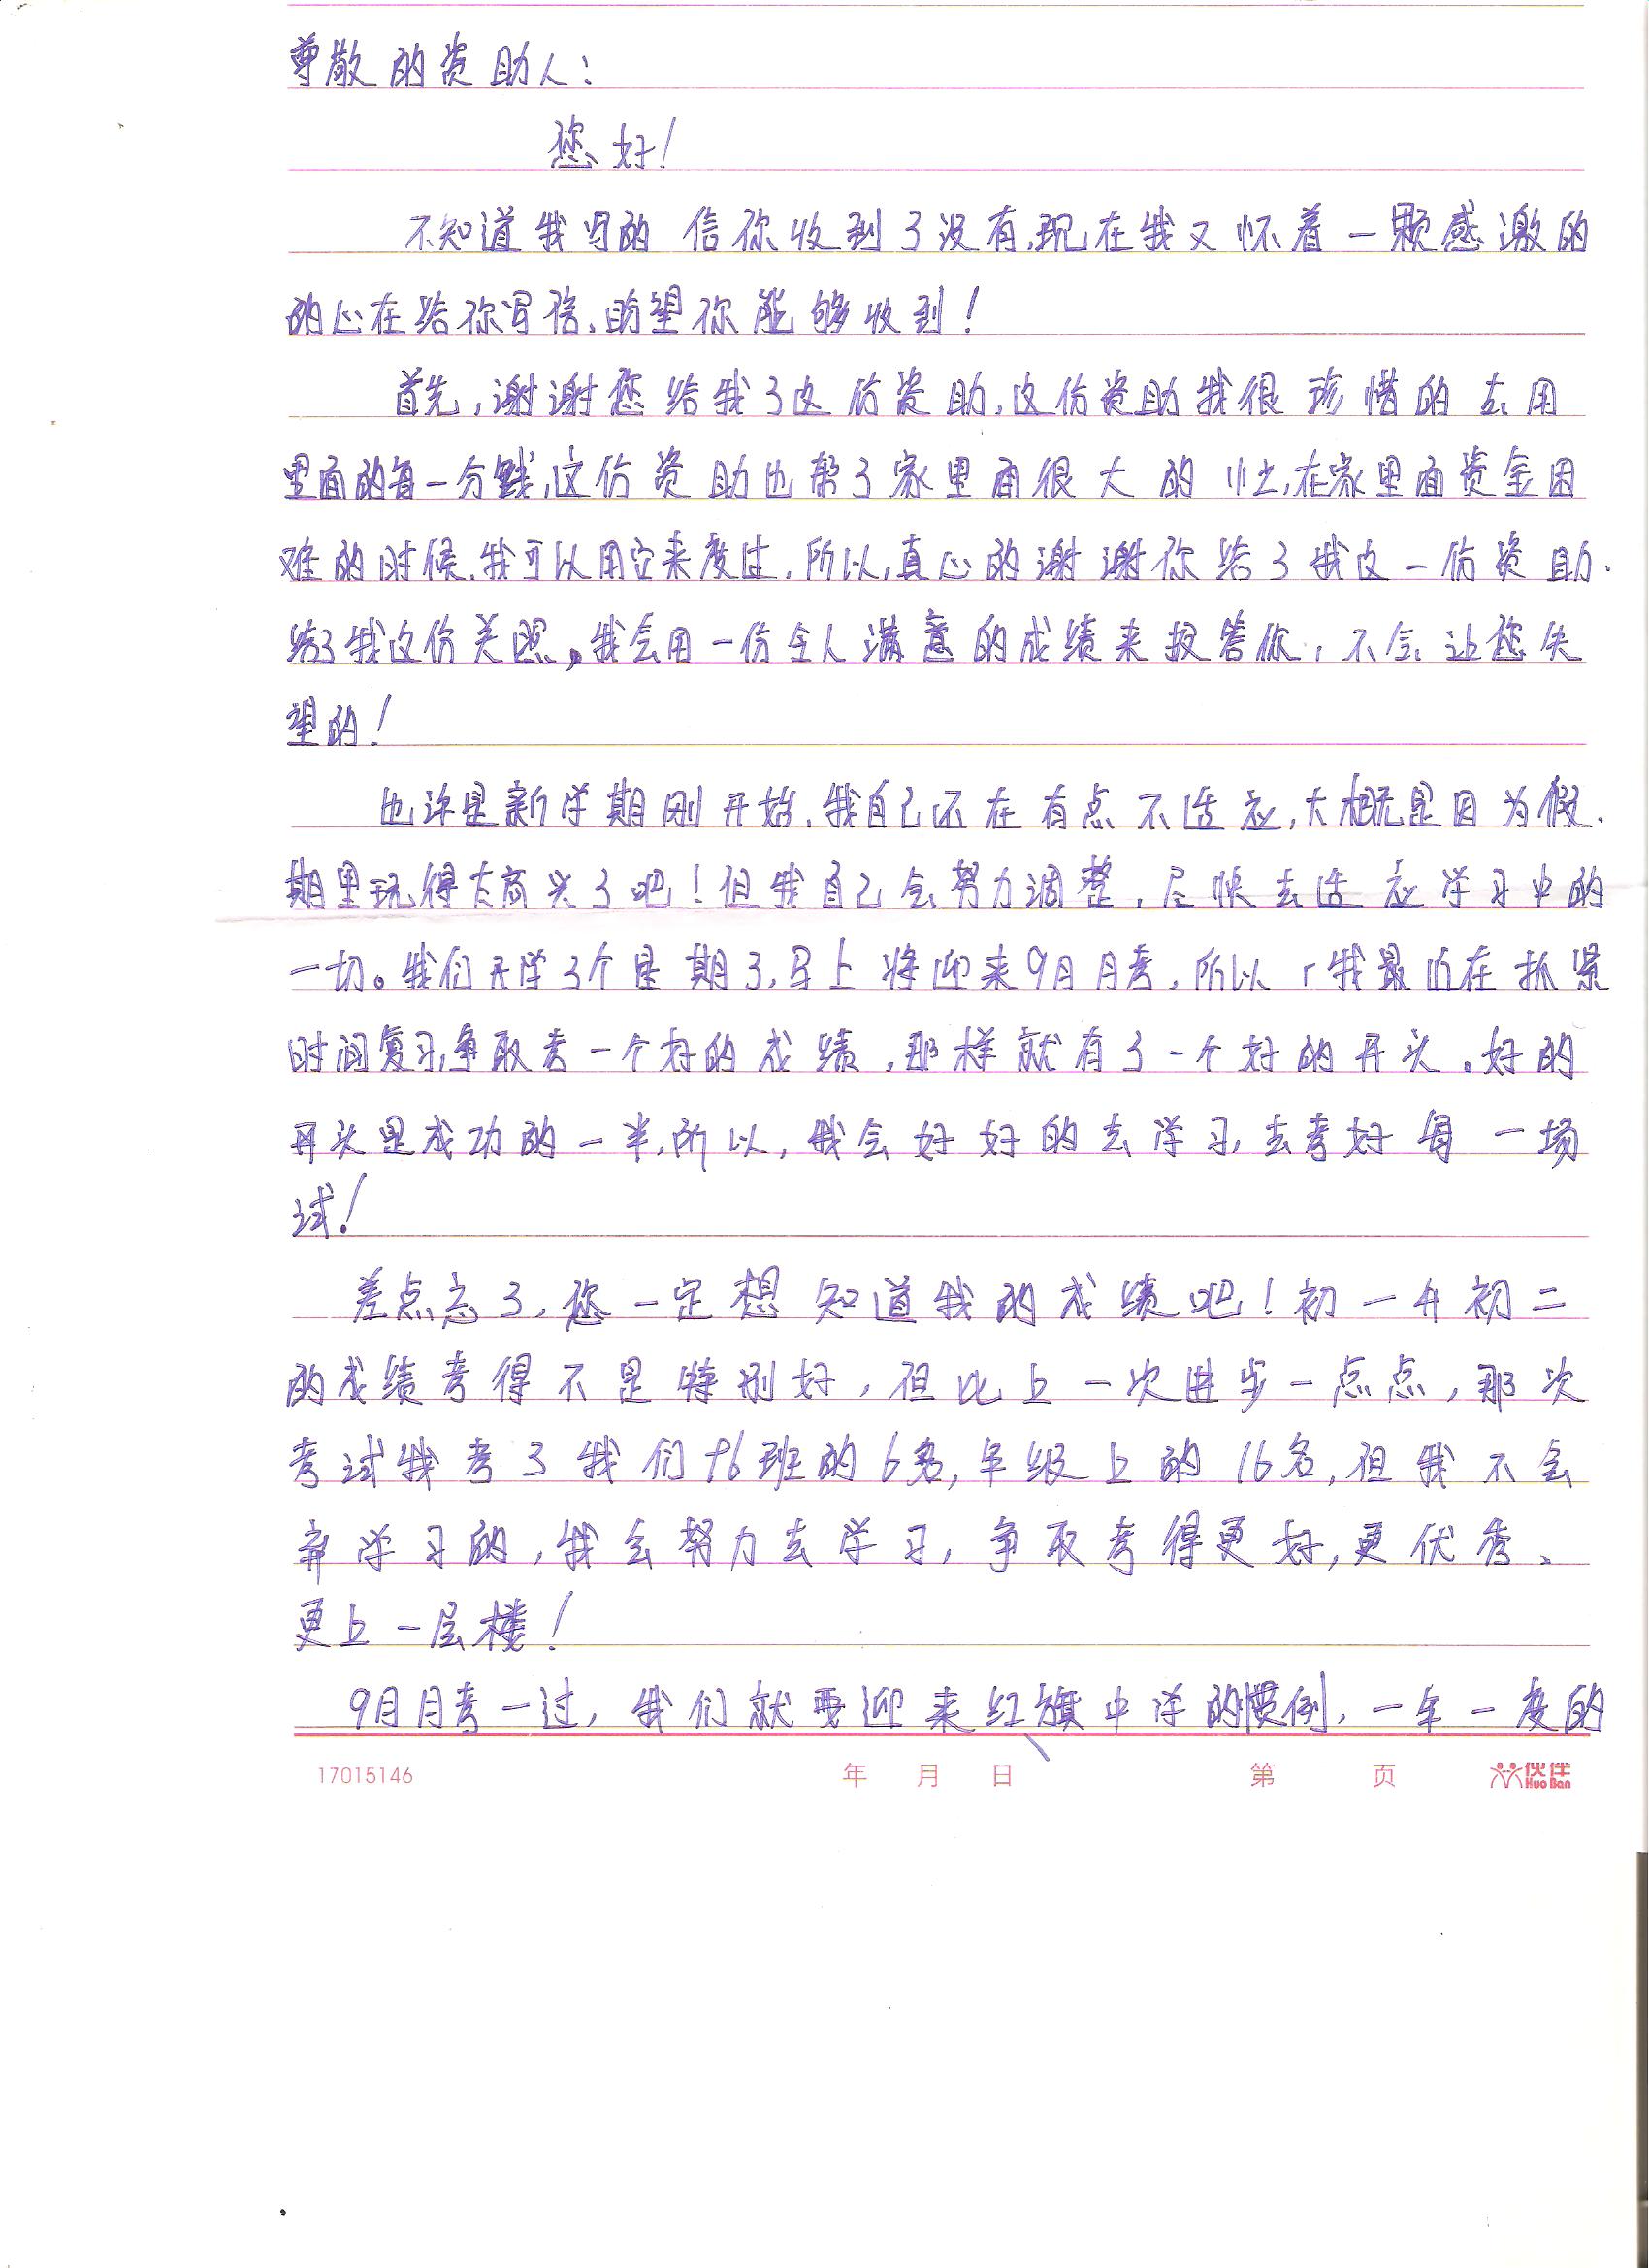 尊敬的资助人：
您好！
不知道我写的信你收到了没有，现在我又怀着一颗感激的
的心在给你写信，盼望你能够收到！
首先，谢谢您给我了这份资助，这份资助我很珍惜的去用
里面的每一分钱，这份资助也帮了家里面很大的忙，在家里面资金困
难的时候，我可以用它来度过，所以，真心的谢谢你给了我这一份资助，
给了我这份关照，我会用一份令人满意的成绩来报答你，不会让您失
望的！
也许是新学期刚开始，我自己还在有点不适应，大概是因为假
期里玩得太高兴了吧！但我自己会努力调整，尽快去适应学习中的
一切。我们开学3个星期了，马上将迎来9月月考，所以，我最近在抓紧
时间复习，争取考一个好的成绩，那样就有了一个好的开头。好的
开头是成功的一半，所以，我会好好的去学习，去考好每一场
试！
差点忘了，您一定想知道我的成绩吧！初一升初二
的成绩考得不是特别好，但比上一次进步一点点，那次
考试我考了我们96班的6名，年级上的16名，但我不会
弃学习的，我会努力去学习，争取考得更好，更优秀、
更上一层楼！
9月月考一过，我们就要迎来红旗中学的惯例，一年一度的
17015146 年 月 日 第 页 伙伴 Huo Ban